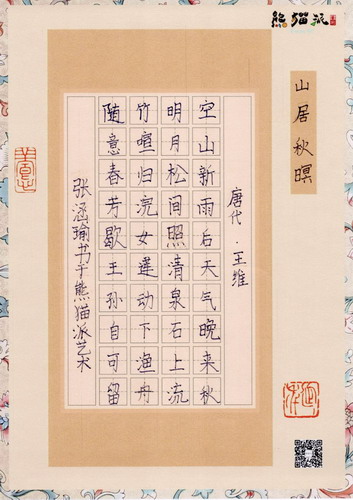 熊猫派
山居秋暝
唐代·王维
空山新雨后天气晚来秋
明月松间照清泉石上流
竹喧归浣女莲动下渔舟
随意春芳歇王孙自可留
张涵瑜书于熊猫派艺术